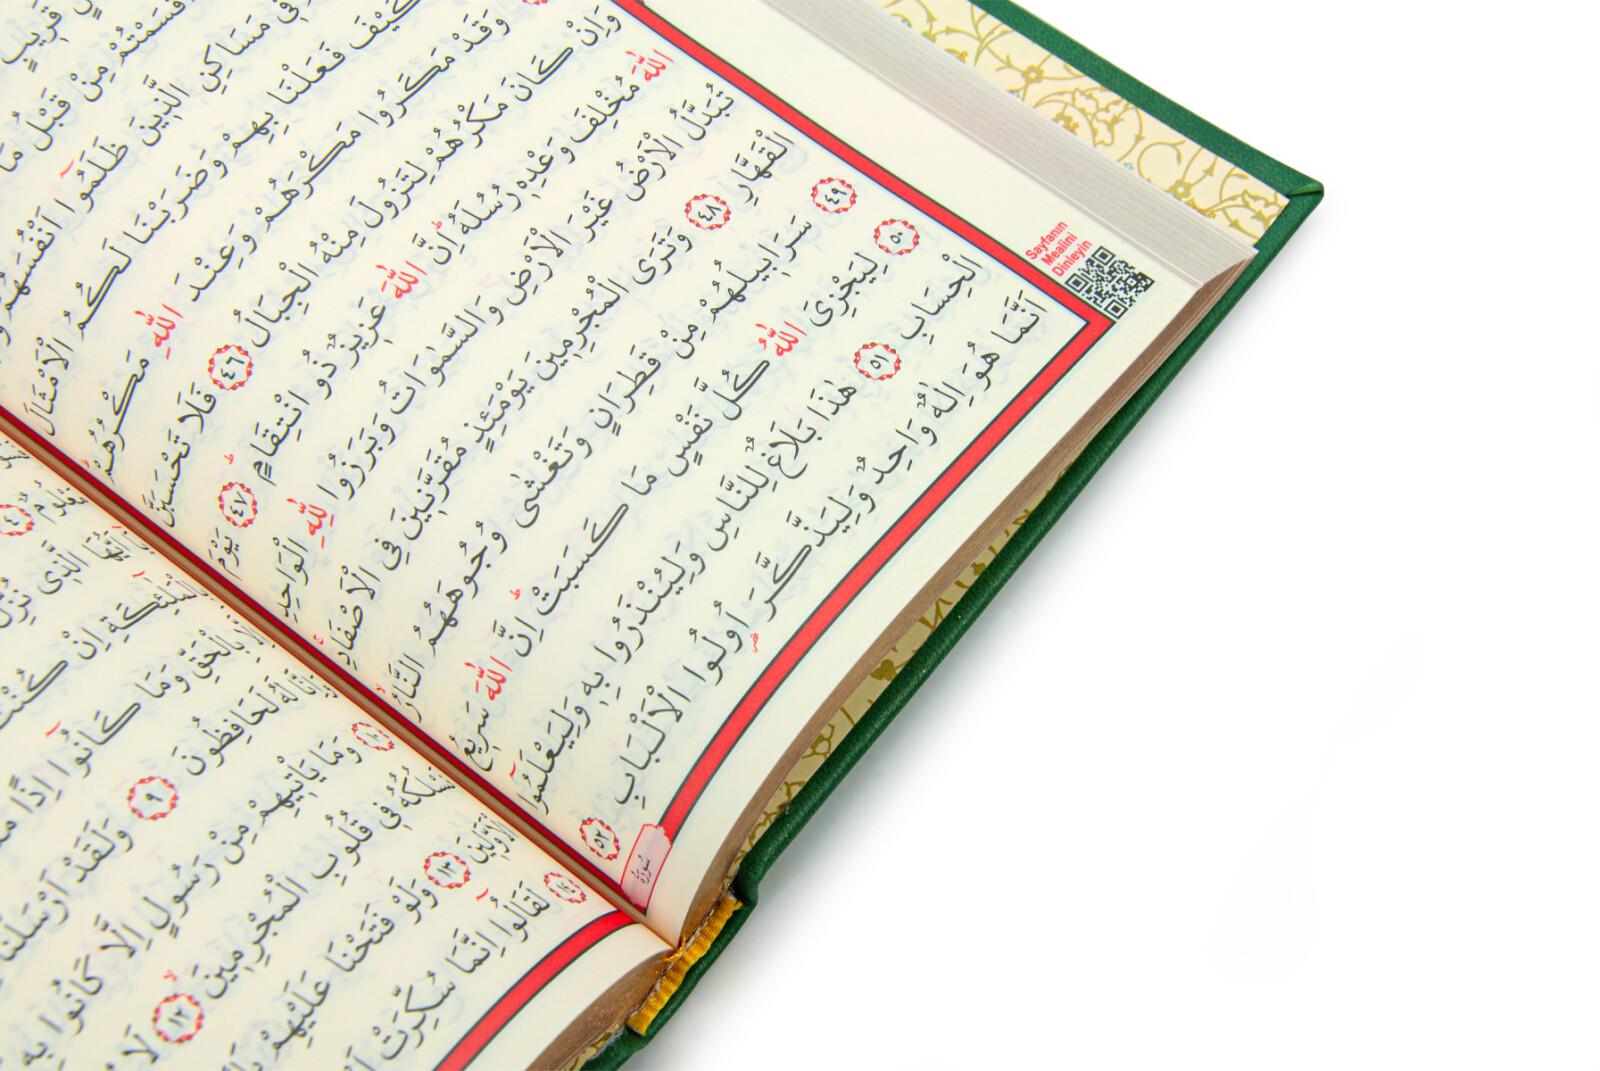 قَرِيبٍ
اَقْسَمْتُمْ مِنْ قَبْلُ مَا
مَسَاكِنِ الَّذِينَ ظَلَمُٓوا اَنْفُسَهُمْ
كَيْفَ فَعَلْنَا بِهِمْ وَضَرَبْنَا لَكُمُ الْاَمْثَالَ
وَقَدْ مَكَرُوا مَكْرَهُمْ وَعِنْدَ اللّٰهِ مَكْرُهُمْ
وَاِنْ كَانَ مَكْرُهُمْ لِتَزُولَ مِنْهُ الْجِبَالُ ٤٦ فَلَا تَحْسَبَنَّ
اللّٰهَ مُخْلِفَ وَعْدِهٖ رُسُلَهُ اِنَّ اللّٰهَ عَزِيزٌ ذُو انْتِقَامٍ ٤٧ يَوْمَ
تُبَدَّلُ الْاَرْضُ غَيْرَ الْاَرْضِ وَالسَّمٰوَاتُ وَبَرَزُوا لِلّٰهِ الْوَاحِدِ
الْقَهَّارِ ٤٨ وَتَرَى الْمُجْرِمِينَ يَوْمَئِذٍ مُقَرَّنِينَ فِى الْاَصْفَادِ
٤٩ سَرَابِيلُهُمْ مِنْ قَطِرَانٍ وَتَغْشٰى وُجُوهَهُمُ النَّارُ
٥٠ لِيَجْزِىَ اللّٰهُ كُلَّ نَفْسٍ مَا كَسَبَتْ اِنَّ اللّٰهَ سَرِيعُ
الْحِسَابِ ٥١ هٰذَا بَلَاغٌ لِلنَّاسِ وَلِيُنْذَرُوا بِهٖ وَلِيَعْلَمُٓوا
اَنَّمَا هُوَ اِلٰهٌ وَاحِدٌ وَلِيَذَّكَّرَ اُولُوا الْاَلْبَابِ ٥٢
Sayfanın
Mealini
Dinleyin
سُورَةُ
الَّذِى نُزِّلَ
الْمَلٰٓئِكَةِ اِنْ كُنْتَ
بِالْحَقِّ وَمَا كَانُٓوا اِذًا
لَهُ لَحَافِظُونَ ٩ وَلَقَدْ اَرْسَلْنَا
١٠ وَمَا يَأْتِيهِمْ مِنْ رَسُولٍ اِلَّا كَانُوا بِهٖ
نَسْلُكُهُ فِى قُلُوبِ الْمُجْرِمِينَ ١٢ لَا
الْاَوَّلِينَ ١٣ وَلَوْ فَتَحْنَا عَلَيْهِمْ
١٤ لَقَالُٓوا اِنَّمَا سُكِّرَتْ